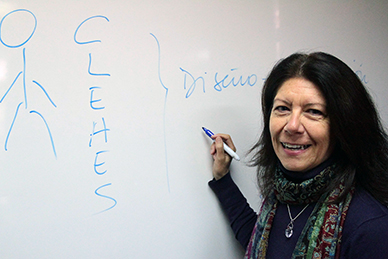 C
L
E
H
E
S
Diseño